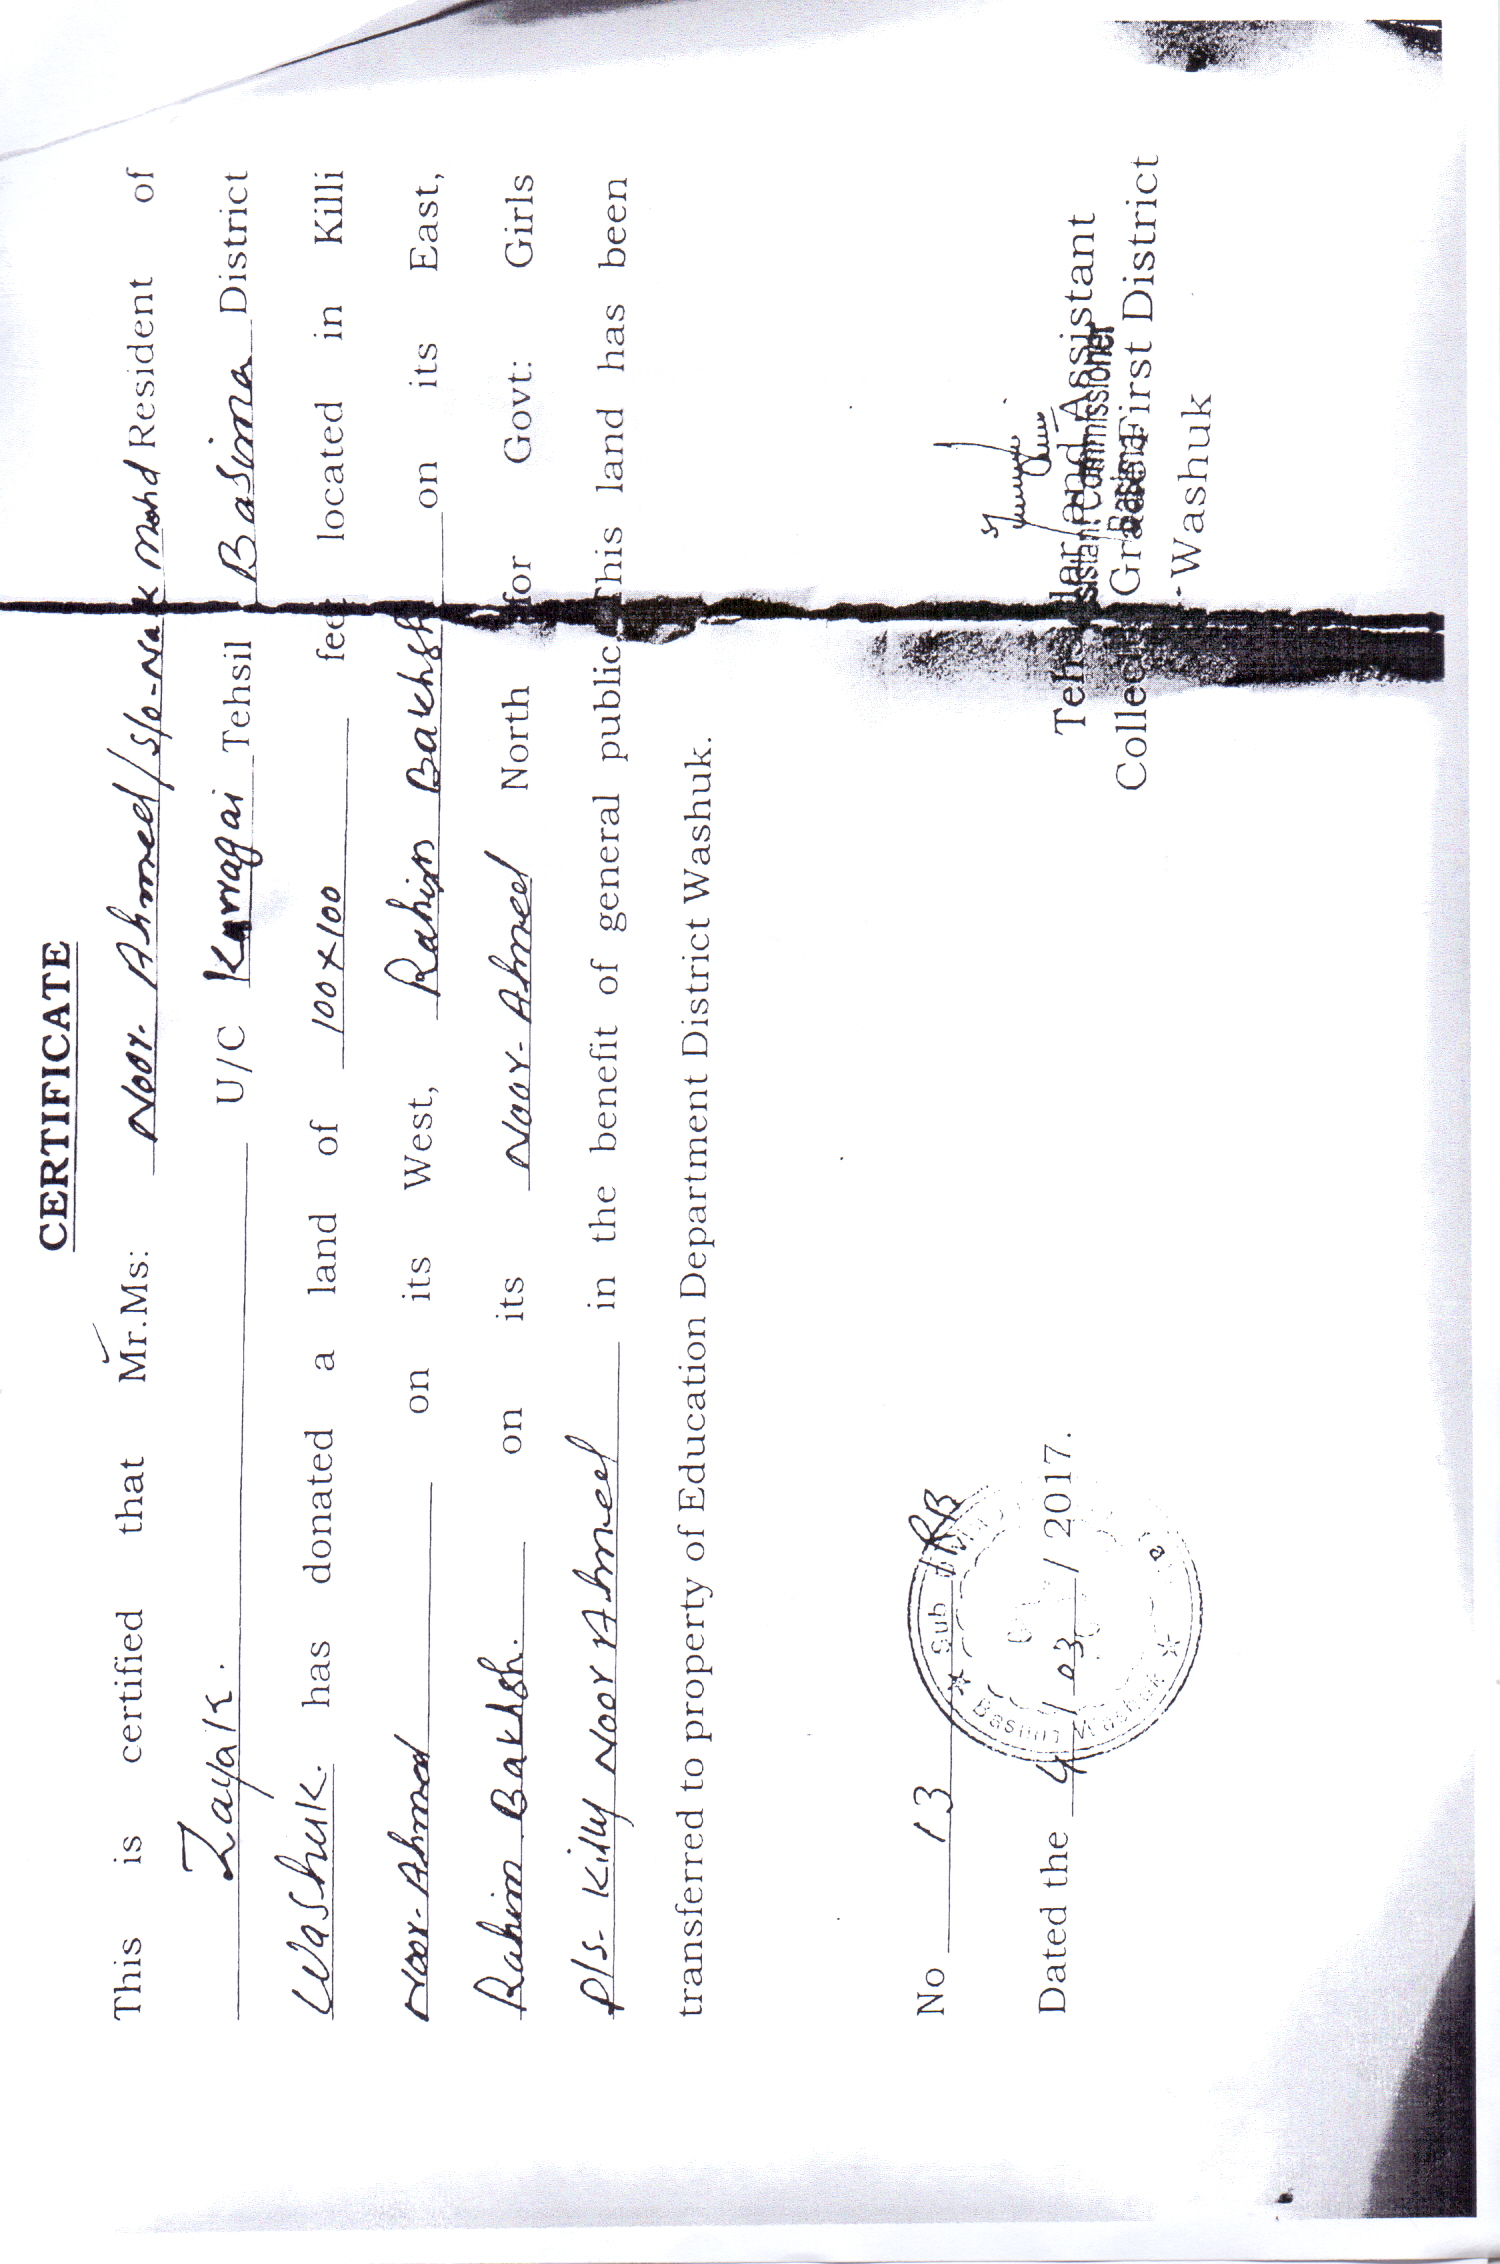 CERTIFICATE
This is certified that Mr.Ms: Noor-Ahmed/S/o-Nak Mohd Resident of
Zayak. U/C Karragai Tehsil Basima District
Washuk. has donated a land of 100x100 feet located in Killi
Noor-Ahmed on its West, Rahim Bakhsh on its East,
Rahim Bakhsh. on its Noor-Ahmed North for Govt: Girls
P/S- Killy Noor Ahmed in the benefit of general public. This land has been
transferred to property of Education Department District Washuk.
No 13 /RB
Dated the 4 / 03 / 2017.
Sub
Basima Washuk
Tehsildar and Assistant
Assistant Commissioner
Collector Grade First District
Basima
-Washuk